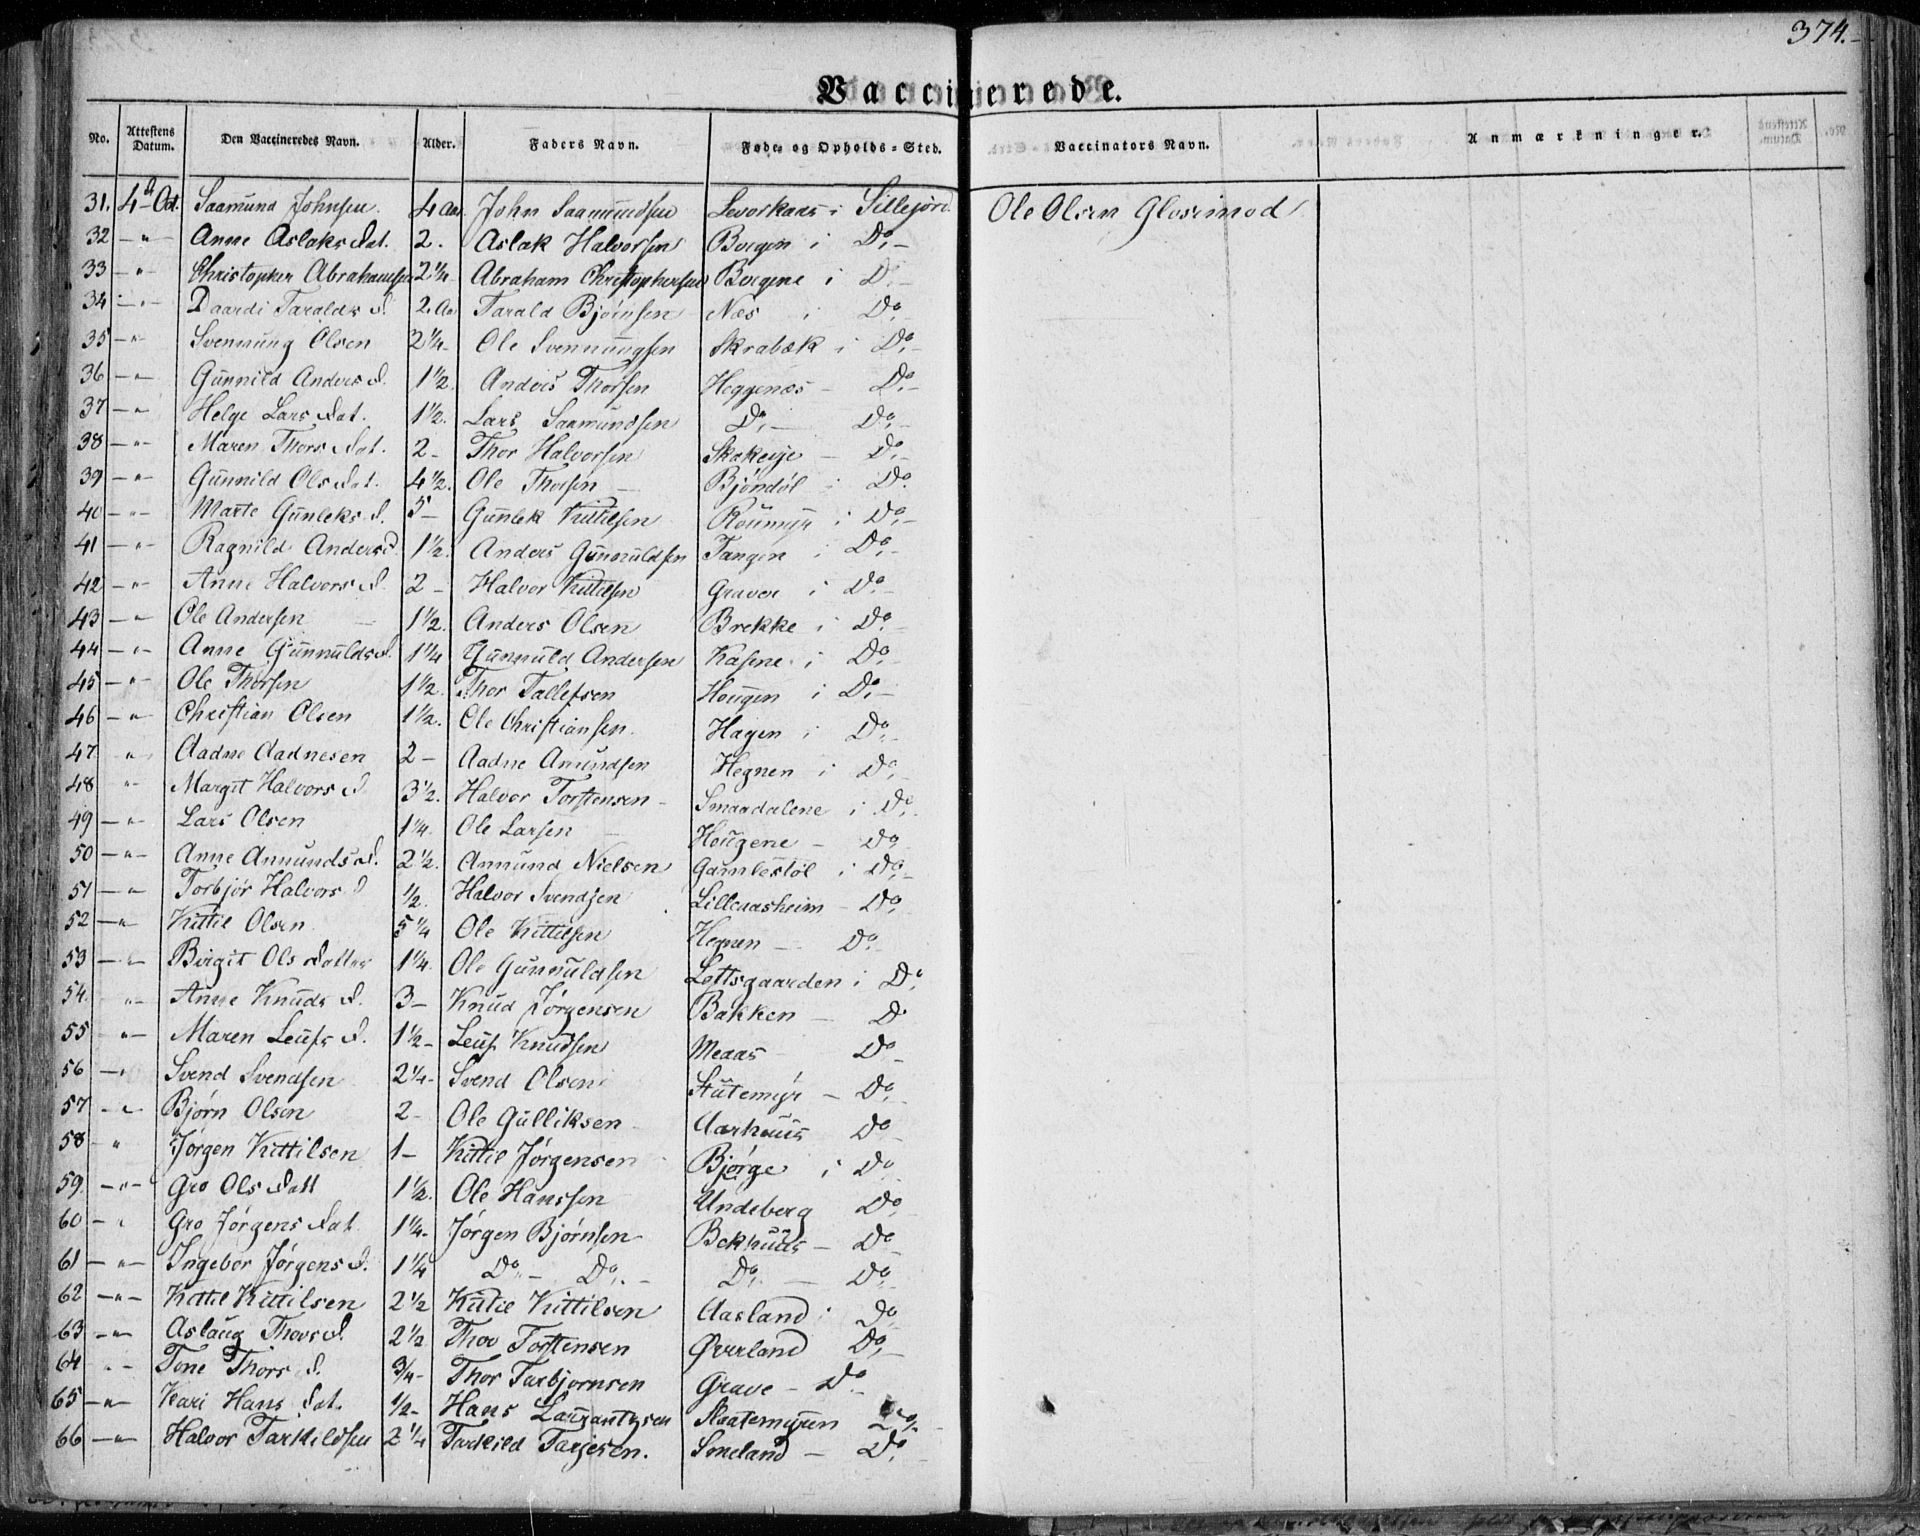 374.
Vaccinerede.
No. Attestens Datum. Den Vaccineredes Navn. Alder. Faders Navn. Føde- og Opholds-Sted. Vaccinators Navn. Anmærkninger.
31. 4de Oct. Saamund Johnsen 4 Aar John Saamundsen i Sillejord Ole Olsen Glosimod
32 — " — Anne Aslaks Dat. 2. Aslak Halvorsen Borgen i Do —
33 — " Christopher Abrahamsen 2 1/4. Abraham Christophersen Borgene i D. —
34 — " — Daardi Taralds D. 2. Aar Tarald Bjørnsen Næs i Do —
35 — " — Svennung Olsen 2 1/4 — Ole Svennungsen Skrabæk i Do —
36 — " — Gunnild Anders D. 1 1/2. Anders Thorsen Heggenæs — Do —
37 — " Helge Lars Dat. 1 1/2. Lars Saamundsen Do — Do —
38 — " — Maren Thors Dat. 2 — Thor Halvorsen — Do —
39 — " — Gunnild Ols Dat. 4 1/2. Ole Thorsen — Bjøndøl i Do
40 — " — Marte Gunleks D. 5 — Gunlek Kittilsen Roümyr i Do —
41 — " — Ragnild Anders D. 1 1/2. Anders Gunnuldsen Tangen i Do —
42 — " — Anne Halvors D. 2 — Halvor Kittilsen Graver i Do —
43 — " Ole Andersen — 1 1/2. Anders Olsen Brekke i Do —
44 — " — Anne Gunnulds D. 1 1/4 Gunnuld Andersen Kasene i Do —
45 — " — Ole Thorsen 1 1/2. Thor Tallefsen Hougen i Do —
46 — " — Christian Olsen 1 1/2. Ole Christiansen Hagen i Do —
47. " Aadne Aadnesen 2 — Aadne Amundsen Hegnen i Do —
48 " Margit Halvors D 3 1/2. Halvor Torstensen — Smaadalene i Do
49 — " — Lars Olsen 1 1/4. Ole Larsen — Hougene — Do
50 — " — Anne Annunds D. 2 1/2. Annund Nielsen Gamlestöl i Do —
51 — " Torbjør Halvors D 1/2. Halvor Svendsen Lilleaasheim — Do
52 — " Kittil Olsen 5 1/4 Ole Kittilsen Hegnen — Do —
53 — " — Birgit Ols Datter 1 1/4. Ole Gunnuldsen Loftsgaarden i Do
54. " — Anne Knuds D. 3 — Knud Jørgensen Bakken — D
55 " — Maren Leufs D. 1 1/2 — Leuf Knudsen Meaas Do —
56 — " Svend Svendsen 2 1/4 — Svend Olsen Stutemyr — Do —
57 — " Bjørn Olsen 2 — Ole Gulliksen Aarhuus Do —
58 " Jørgen Kittilsen 1 — Kittil Jørgensen Bjørge i Do
59. — " — Gro Ols Datt 1 1/2. Ole Hanssen Undeberg Do
60 — " Gro Jørgens Dat. 1 1/4 — Jørgen Bjørnsen Bekhuus — Do —
61 — " — Ingebor Jørgens D. 1 1/4 Do — Do. — Do. — Do —
62 — " — Kittil Kittilsen 2 1/2 Kittil Kittilsen Aasland i Do
63 — " — Aslaug Thors D. 2 1/2 Thor Torstensen Øverland Do —
64 " — Tone Thors D. 3/4 — Thor Tarbjornsen Grave — Do —
65 — " — Kari Hans Dat. 1/2 — Hans Laurantzsen Slaatemyren Do —
66 — " — Halvor Tarkildsen 2 1/4 Tarkild Tarjesen. Smeland — Do